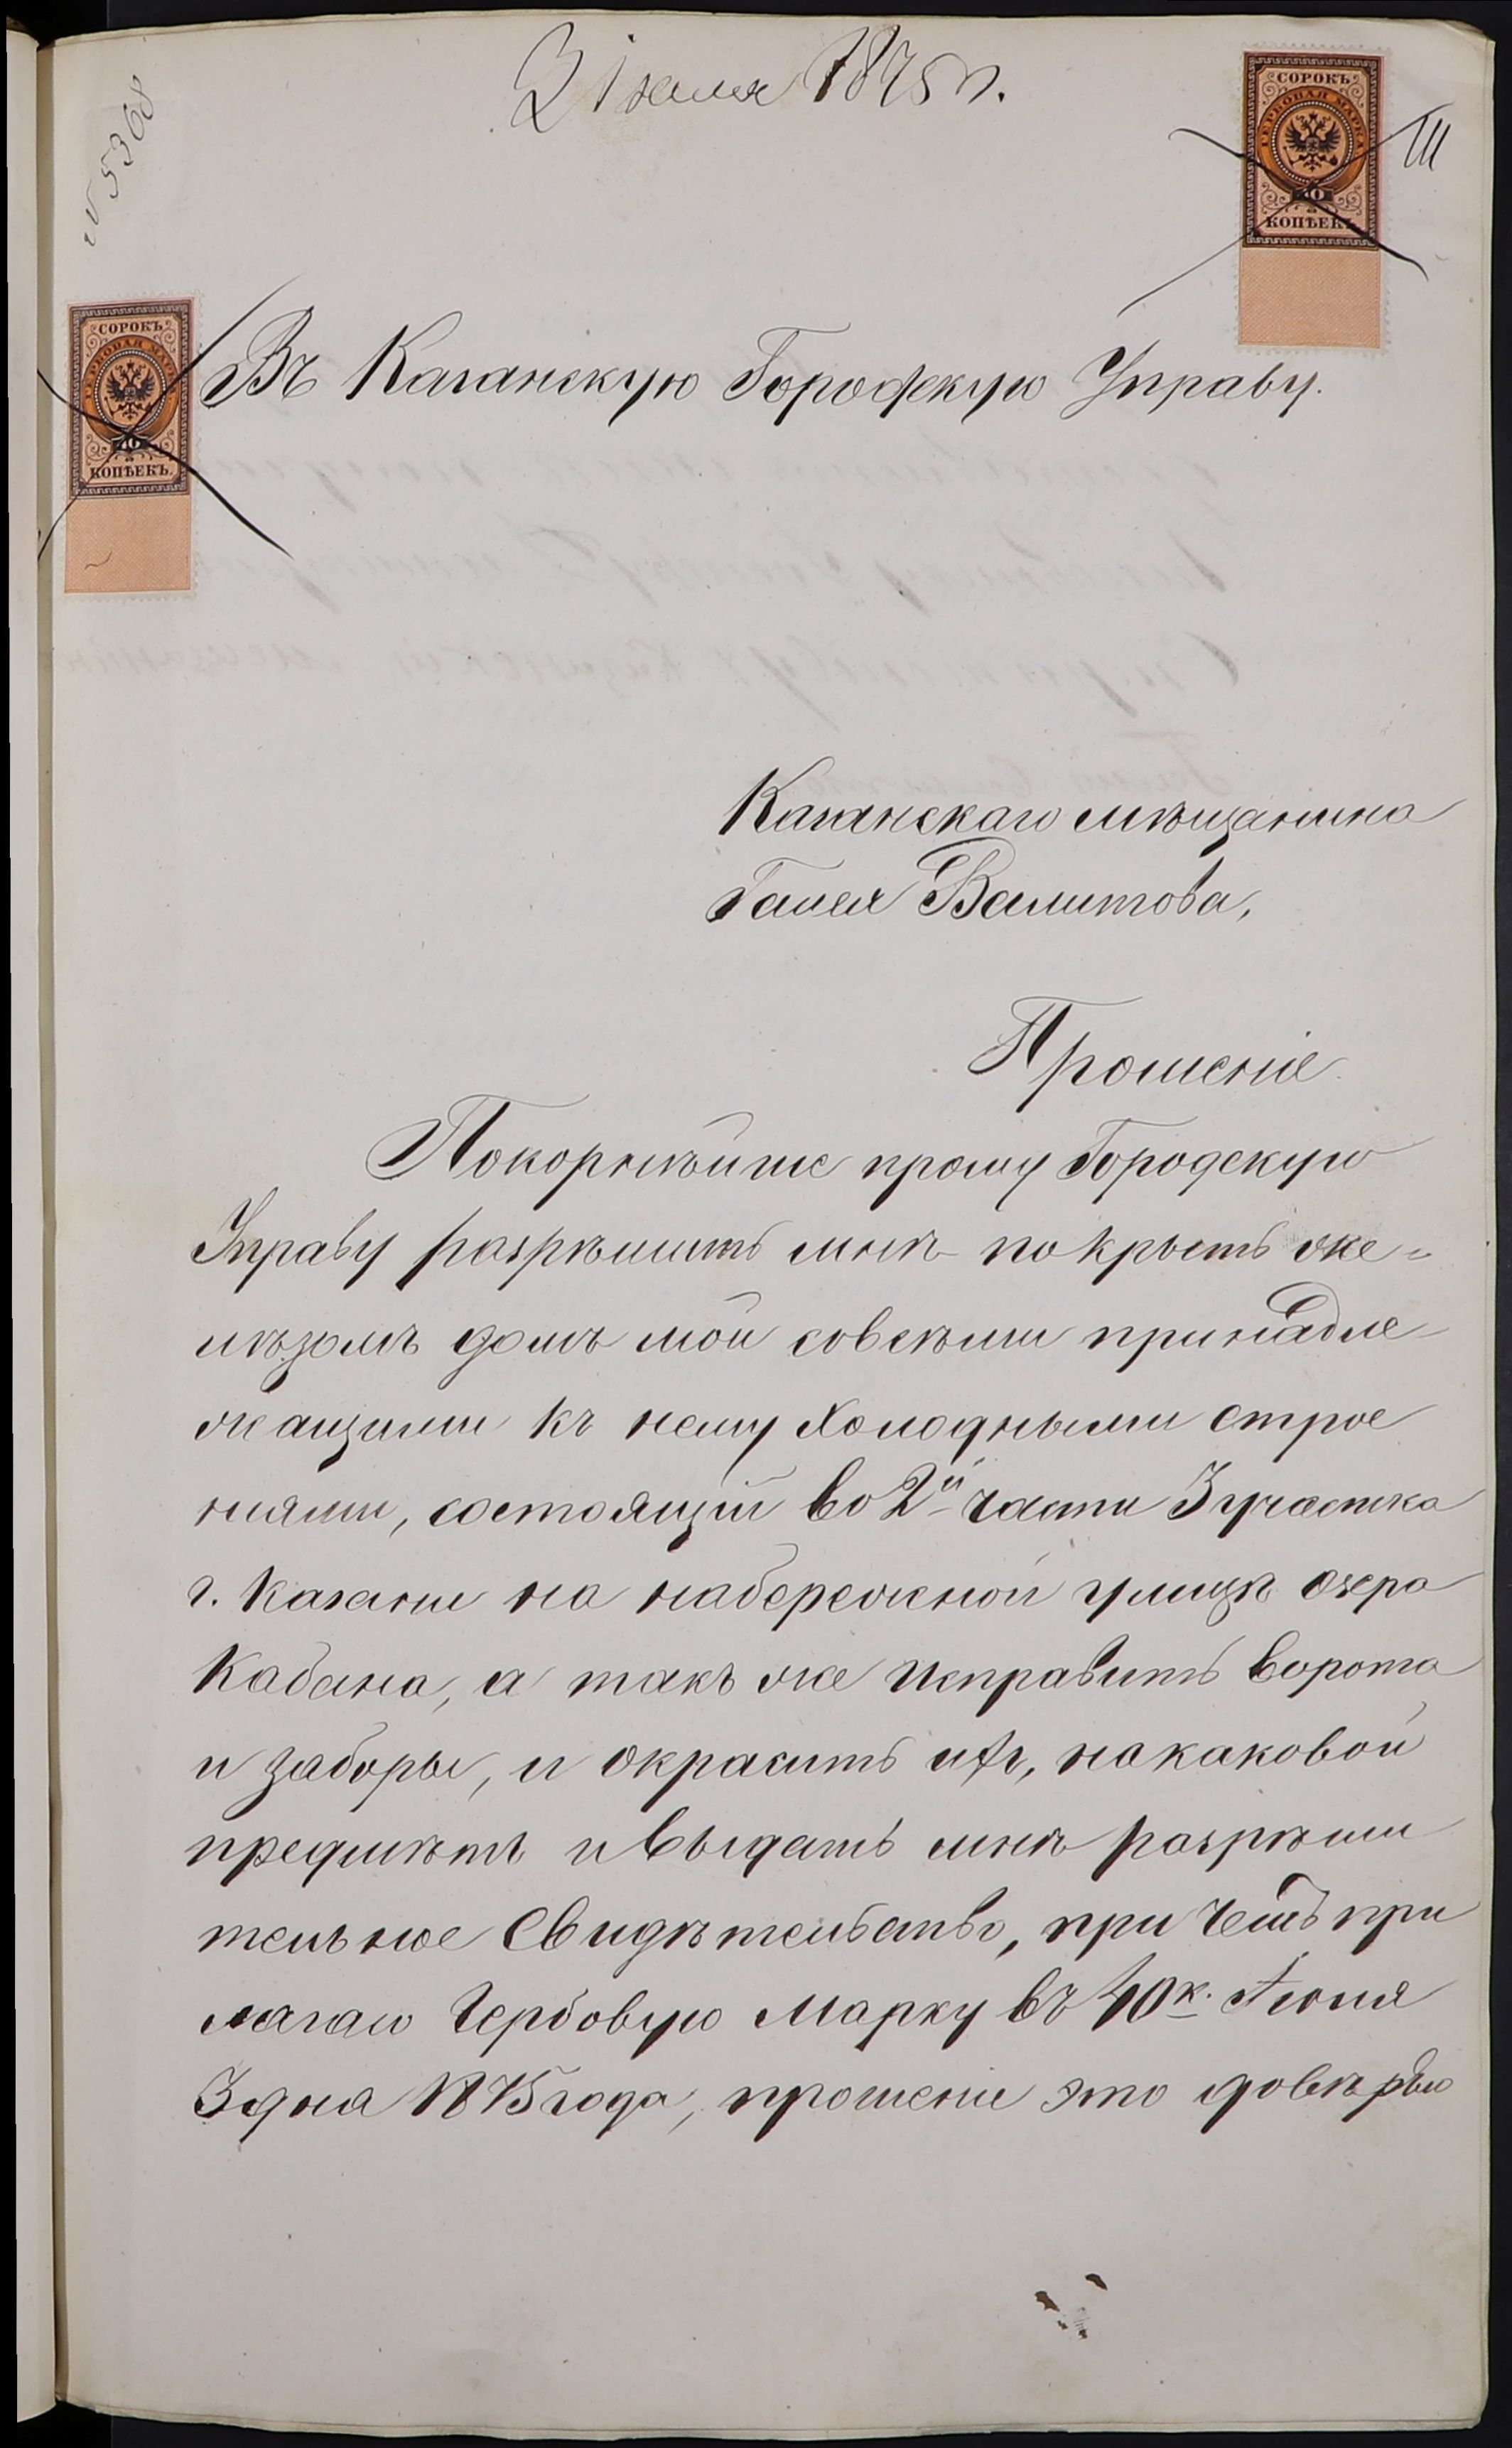 3 Iюля 1875 г.
N 5368
III
СОРОКЪ
ГЕРБОВАЯ МАРКА
40
КОПѢЕКЪ.
СОРОКЪ
ГЕРБОВАЯ МАРКА
40
КОПѢЕКЪ.
Въ Казанскую Городскую Управу.
Казанскаго мѣщанина
Галея Валитова,
Прошеніе.
Покорнѣйше прошу Городскую
Управу разрѣшить мнѣ покрыть же-
лѣзомъ домъ мой совсѣми принадле
жащими къ нему холодными строе
ніями, состоящій во 2й части 3 участка
г. Казани на набережной улицѣ озера
Кабана, а такъ же исправить ворота
и заборы, и окрасить ихъ, на каковой
предмѣтъ и выдать мнѣ разрѣши
тельное Свидѣтельство, при чемъ при
лагаю Гербовую Марку въ 40 к. Июля
3 дня 1875 года, прошеніе это довѣряю